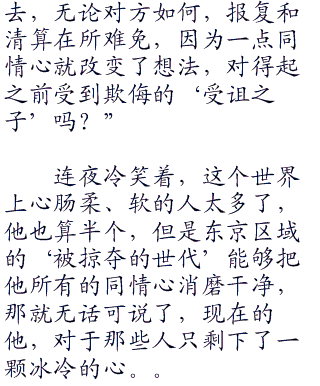 去，无论对方如何，报复和
清算在所难免，因为一点同
情心就改变了想法，对得起
之前受到欺侮的‘受诅之
子’吗？”
连夜冷笑着，这个世界
上心肠柔、软的人太多了，
他也算半个，但是东京区域
的‘被掠夺的世代’能够把
他所有的同情心消磨干净，
那就无话可说了，现在的
他，对于那些人只剩下了一
颗冰冷的心。。